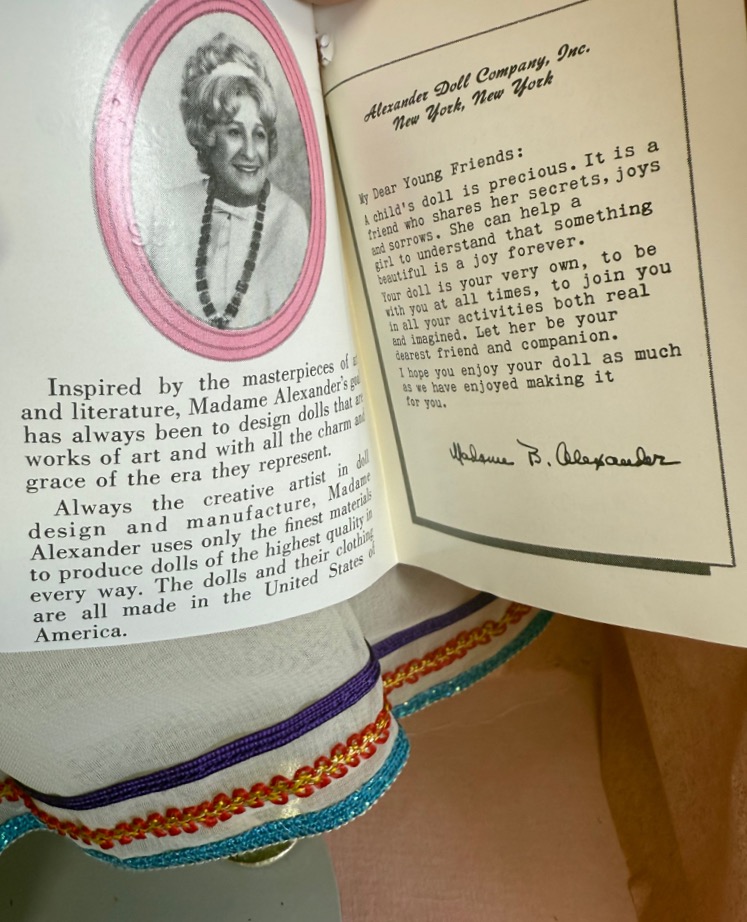 Inspired by the masterpieces of
and literature, Madame Alexander's
has always been to design dolls that are
works of art and with all the charm and
grace of the era they represent.
Always the creative artist in doll
design and manufacture, Madame
Alexander uses only the finest materials
to produce dolls of the highest quality in
every way. The dolls and their clothing
are all made in the United States of
America.
Alexander Doll Company, Inc.
New York, New York
My Dear Young Friends:
A child's doll is precious. It is a
friend who shares her secrets, joys
and sorrows. She can help a
girl to understand that something
beautiful is a joy forever.
Your doll is your very own, to be
with you at all times, to join you
in all your activities both real
and imagined. Let her be your
dearest friend and companion.
I hope you enjoy your doll as much
as we have enjoyed making it
for you.
Madame B. Alexander